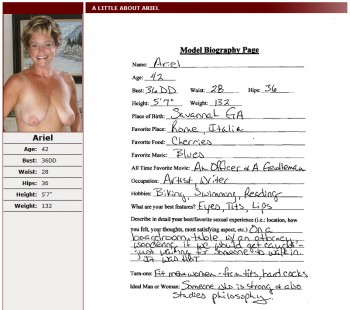 A LITTLE ABOUT ARIEL
Ariel
Age: 42
Bust: 36DD
Waist: 28
Hips: 36
Height: 5'7"
Weight: 132
Model Biography Page
Name: Ariel
Age: 42
Bust: 36DD Waist: 28 Hips: 36
Height: 5'7" Weight: 132
Place of Birth: Savannah GA
Favorite Place: Rome, Italia
Favorite Food: Cherries
Favorite Music: Blues
All Time Favorite Movie: An Officer & A Gentleman
Occupation: Artist, Writer
Hobbies: Biking, Swimming, Reading
What are your best features? Eyes, Tits, Lips
Describe in detail your best/favorite sexual experience (i.e.: location, how
you felt, your thoughts, most satisfying aspect, etc.) On a
boardroom table w/ an attorney
wondering if we would get caught -
just waiting for someone to walk in.
It was HOT.
Turn-ons: Fit men & women - firm tits, hard cocks
Ideal Man or Woman: Someone who is strong & also
studies philosophy.